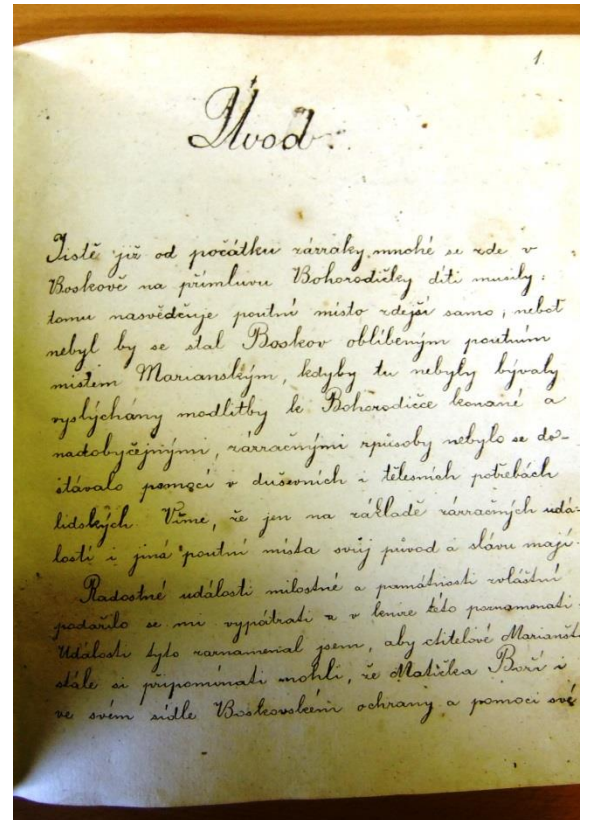 1.
Úvod.
Jistě již od počátku zázraky mnohé se zde v
Boskově na přímluvu Bohorodičky díti musily:
tomu nasvědčuje poutní místo zdejší samo, neboť
nebyl by se stal Boskov oblíbeným poutním
místem Marianským, kdyby tu nebyly bývaly
vyslýchány modlitby k Bohorodičce konané a
nadobyčejnými, zázračnými způsoby nebylo se do-
stávalo pomoci v duševních i tělesních potřebách
lidských. Víme, že jen na základě zázračných udá-
lostí i jiná poutní místa svůj původ a slávu mají.
Radostné události milostné a památnosti zvláštní
podařilo se mi vypátrati a v knize této poznamenati.
Události tyto zaznamenal jsem, aby ctitelové Marianští
stále si připomínati mohli, že Matička Boží i
ve svém sídle Boskovském ochrany a pomoci své